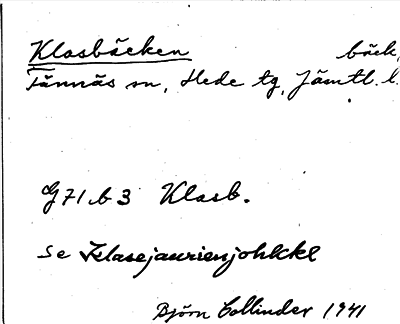 Klasbäcken bäck,
Tännäs sn, Hede tg, Jämtl. l.
G 71 b 3 Klasb.
Se Klasejaurienjohkke
Björn Collinder 1941